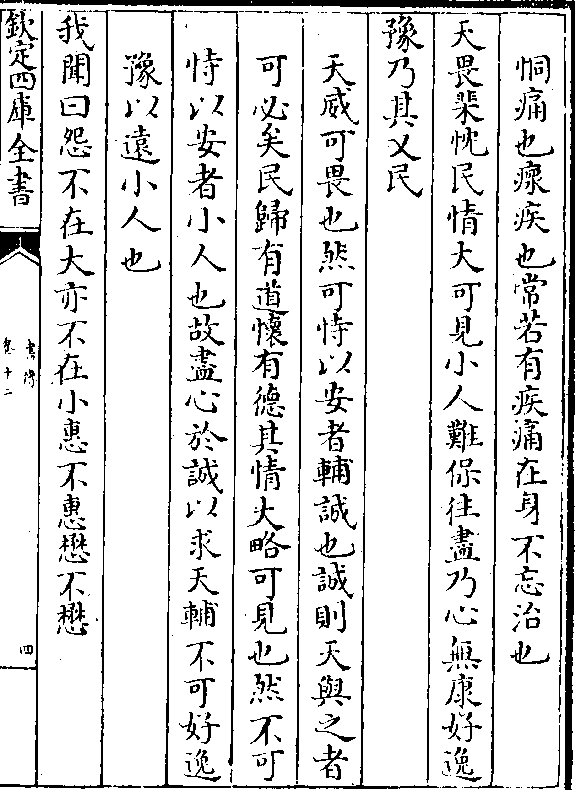 恫痛也瘝疾也常若有疾痛在身不忘治也
天畏棐忱民情大可見小人難保往盡乃心無康好逸
豫乃其乂民
天威可畏也然可恃以安者輔誠也誠則天與之者
可必矣民歸有道懷有德其情大略可見也然不可
恃以安者小人也故盡心於誠以求天輔不可好逸
豫以遠小人也
我聞曰怨不在大亦不在小惠不惠懋不懋
欽定四庫全書
書傳
卷十二
四